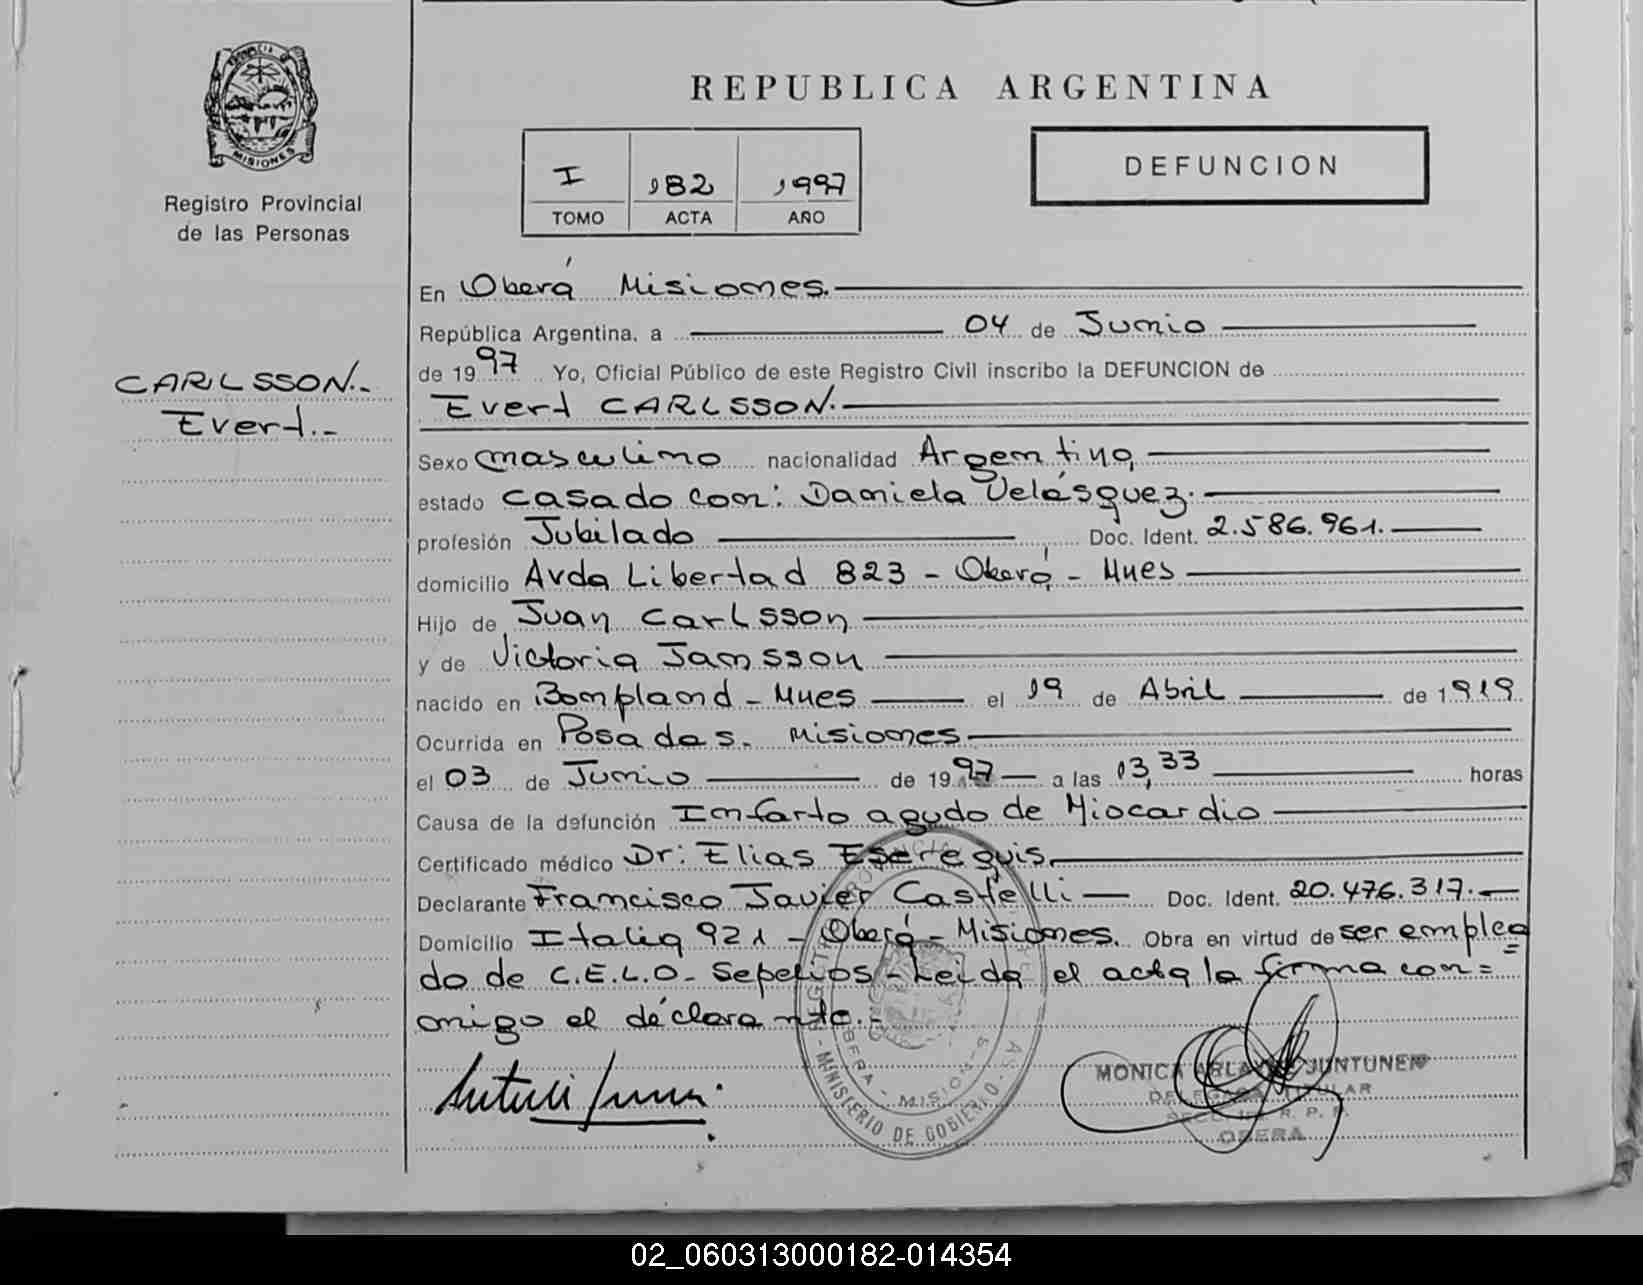 REPUBLICA ARGENTINA
MISIONES
Registro Provincial
de las Personas
I 182 1997
TOMO ACTA AÑO
DEFUNCION
CARLSSON.-
Evert.-
En Oberá Misiones.
República Argentina, a 04 de Junio
de 1997 Yo, Oficial Público de este Registro Civil inscribo la DEFUNCION de
Evert CARLSSON.
Sexo masculino nacionalidad Argentina
estado casado con: Daniela Velásquez.
profesión Jubilado Doc. Ident. 2.586.961.
domicilio Avda Libertad 823 - Oberá - Mnes
Hijo de Juan Carlsson
y de Victoria Jansson
nacido en Bompland - Mnes el 19 de Abril de 1919
Ocurrida en Posadas. Misiones.
el 03 de Junio de 1997 a las 13,33 horas
Causa de la defunción Infarto agudo de Miocardio
Certificado médico Dr: Elias
Declarante Francisco Javier Castelli Doc. Ident. 20.476.317.
Domicilio Italia 921 - Oberá - Misiones. Obra en virtud de ser emplea=
do de C.E.L.O. Sepelios - Leida el acta la firma con=
migo el declarante.-
MINISTERIO DE GOBIERNO
MONICA JUNTUNEN
R. P. P.
OBERA
02_060313000182-014354